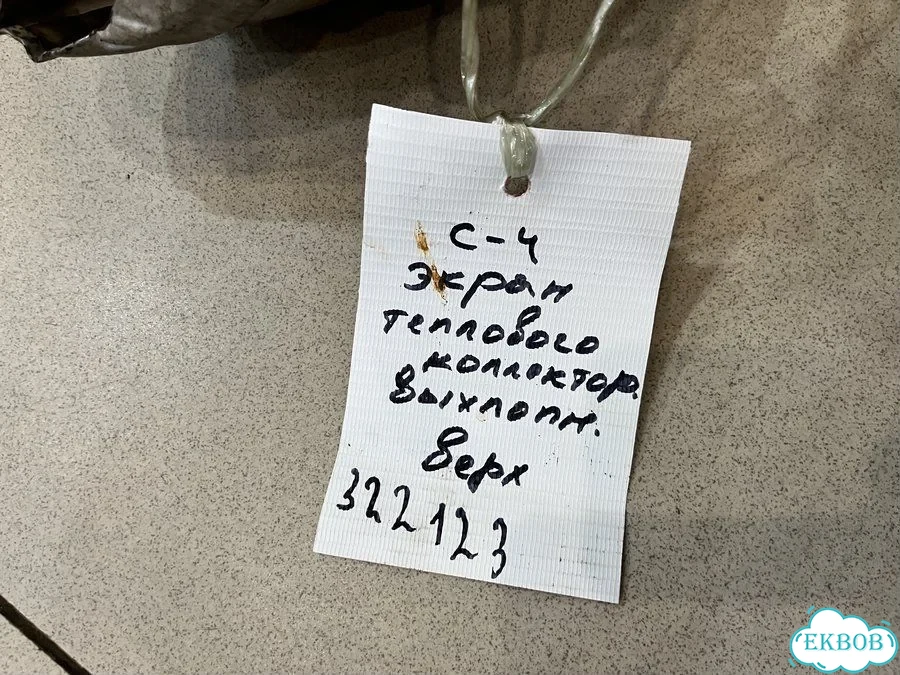 С-4
Экран
теплового
коллектор.
выхлопн.
верх
322123
EKBOB